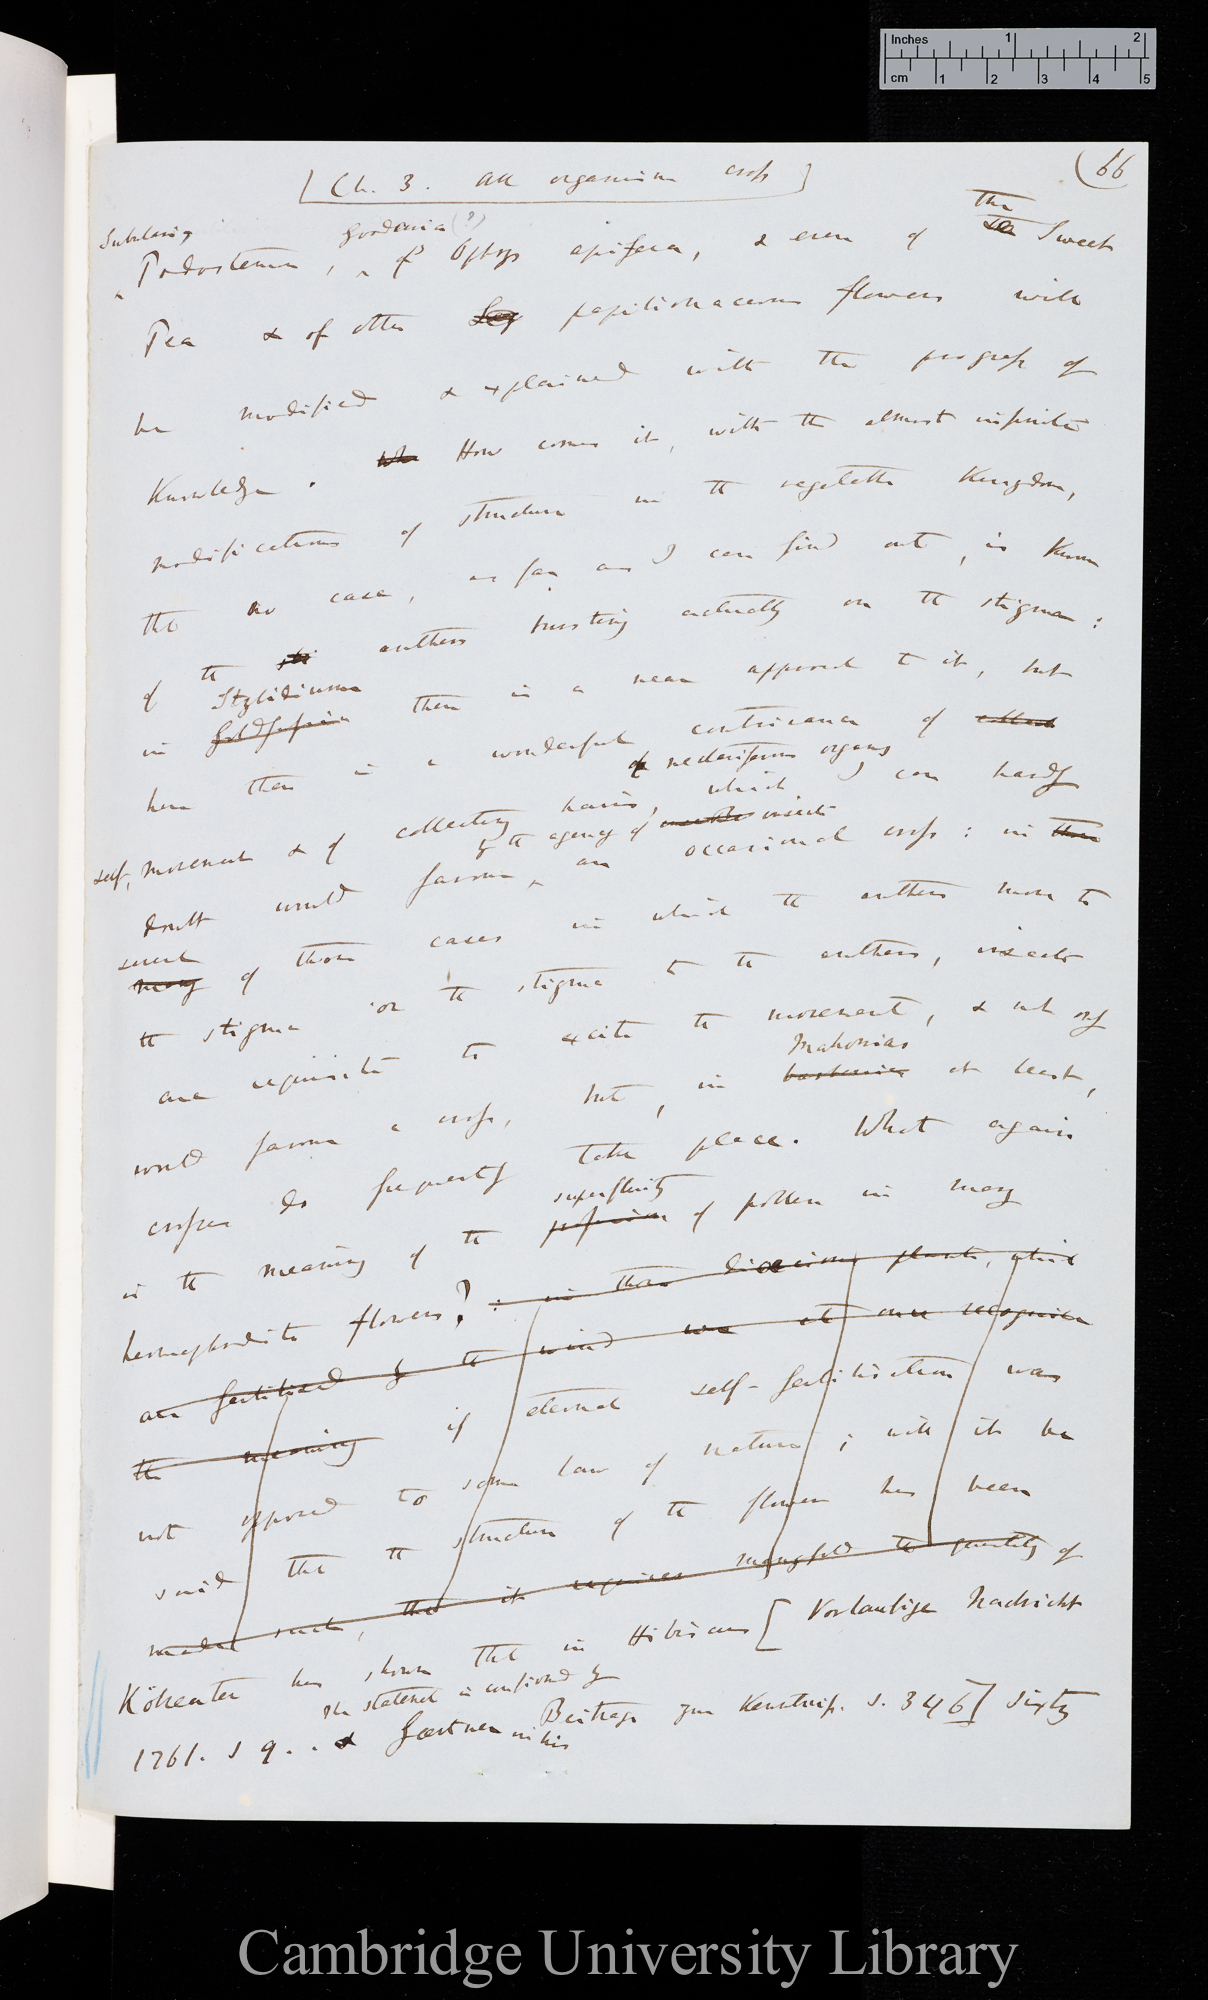 Inches 1 2
cm 1 2 3 4 5
[Ch. 3. All organisms cross]
(66
Subularia, Gordonia (?) the
Podostemon, , of Ophrys apifera, & even of Sweet
Pea & of other Leg papilionaceous flowers will
be modified & explained with the progress of
Knowledge. Why How comes it, with the almost infinite
modifications of structure in the vegetable Kingdom,
that no case, as far as I can find out, is known
of the sti anthers bursting actually on the stigma:
Stylidium
in Goldfussia there is a near approach to it, but
here there is a wonderful contrivance of collect
of nectariferous organs
self, movement & of collecting hairs, which I can hardly
by the agency of insects
doubt would favour an occasional cross: in those
several
many of those cases in which the anthers move to
the stigma or the stigma to the anthers, insects
are requisite to excite the movement, & not only
Mahonias
would favour a cross, but, in berberries at least,
crosses do frequently take place. What again
superfluity
is the meaning of the profusion of pollen in many
hermaphrodite flowers? : in those dioecious plants, which
are fertilised by the wind we at once recognise
the meaning if eternal self-fertilisation was
not opposed to some law of nature; will it be
said that the structure of the flower has been
made such, that it requires manyfold the quantity of
Kölreuter has shown that in Hibiscus [Vorlaufige Nachricht
his statement is confirmed by
1761. s 9. . & Gaertner in his Beitrage zur Kenntniss. s. 346] sixty
Cambridge University Library